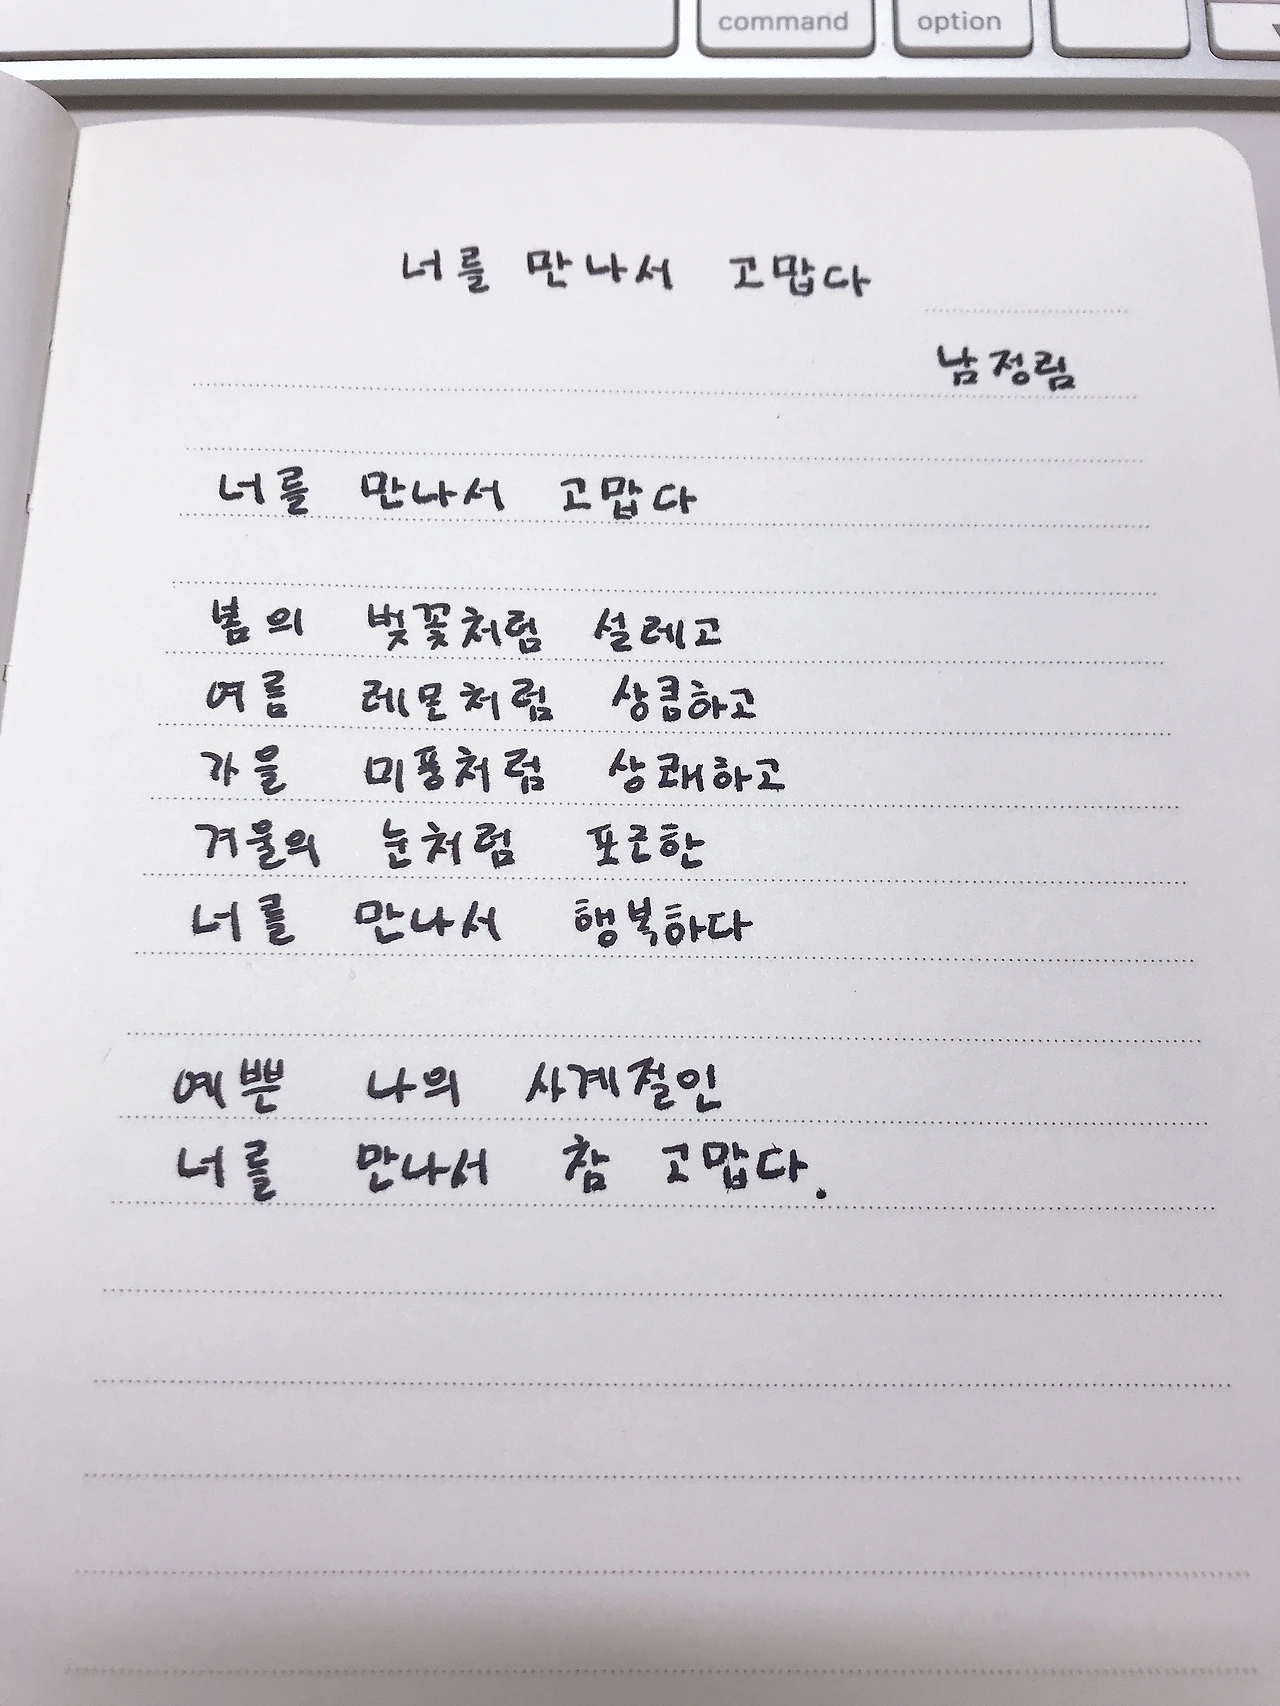 command option
너를 만나서 고맙다
남정림
너를 만나서 고맙다
봄의 벚꽃처럼 설레고
여름 레몬처럼 상큼하고
가을 미풍처럼 상쾌하고
겨울의 눈처럼 포근한
너를 만나서 행복하다
예쁜 나의 사계절인
너를 만나서 참 고맙다.